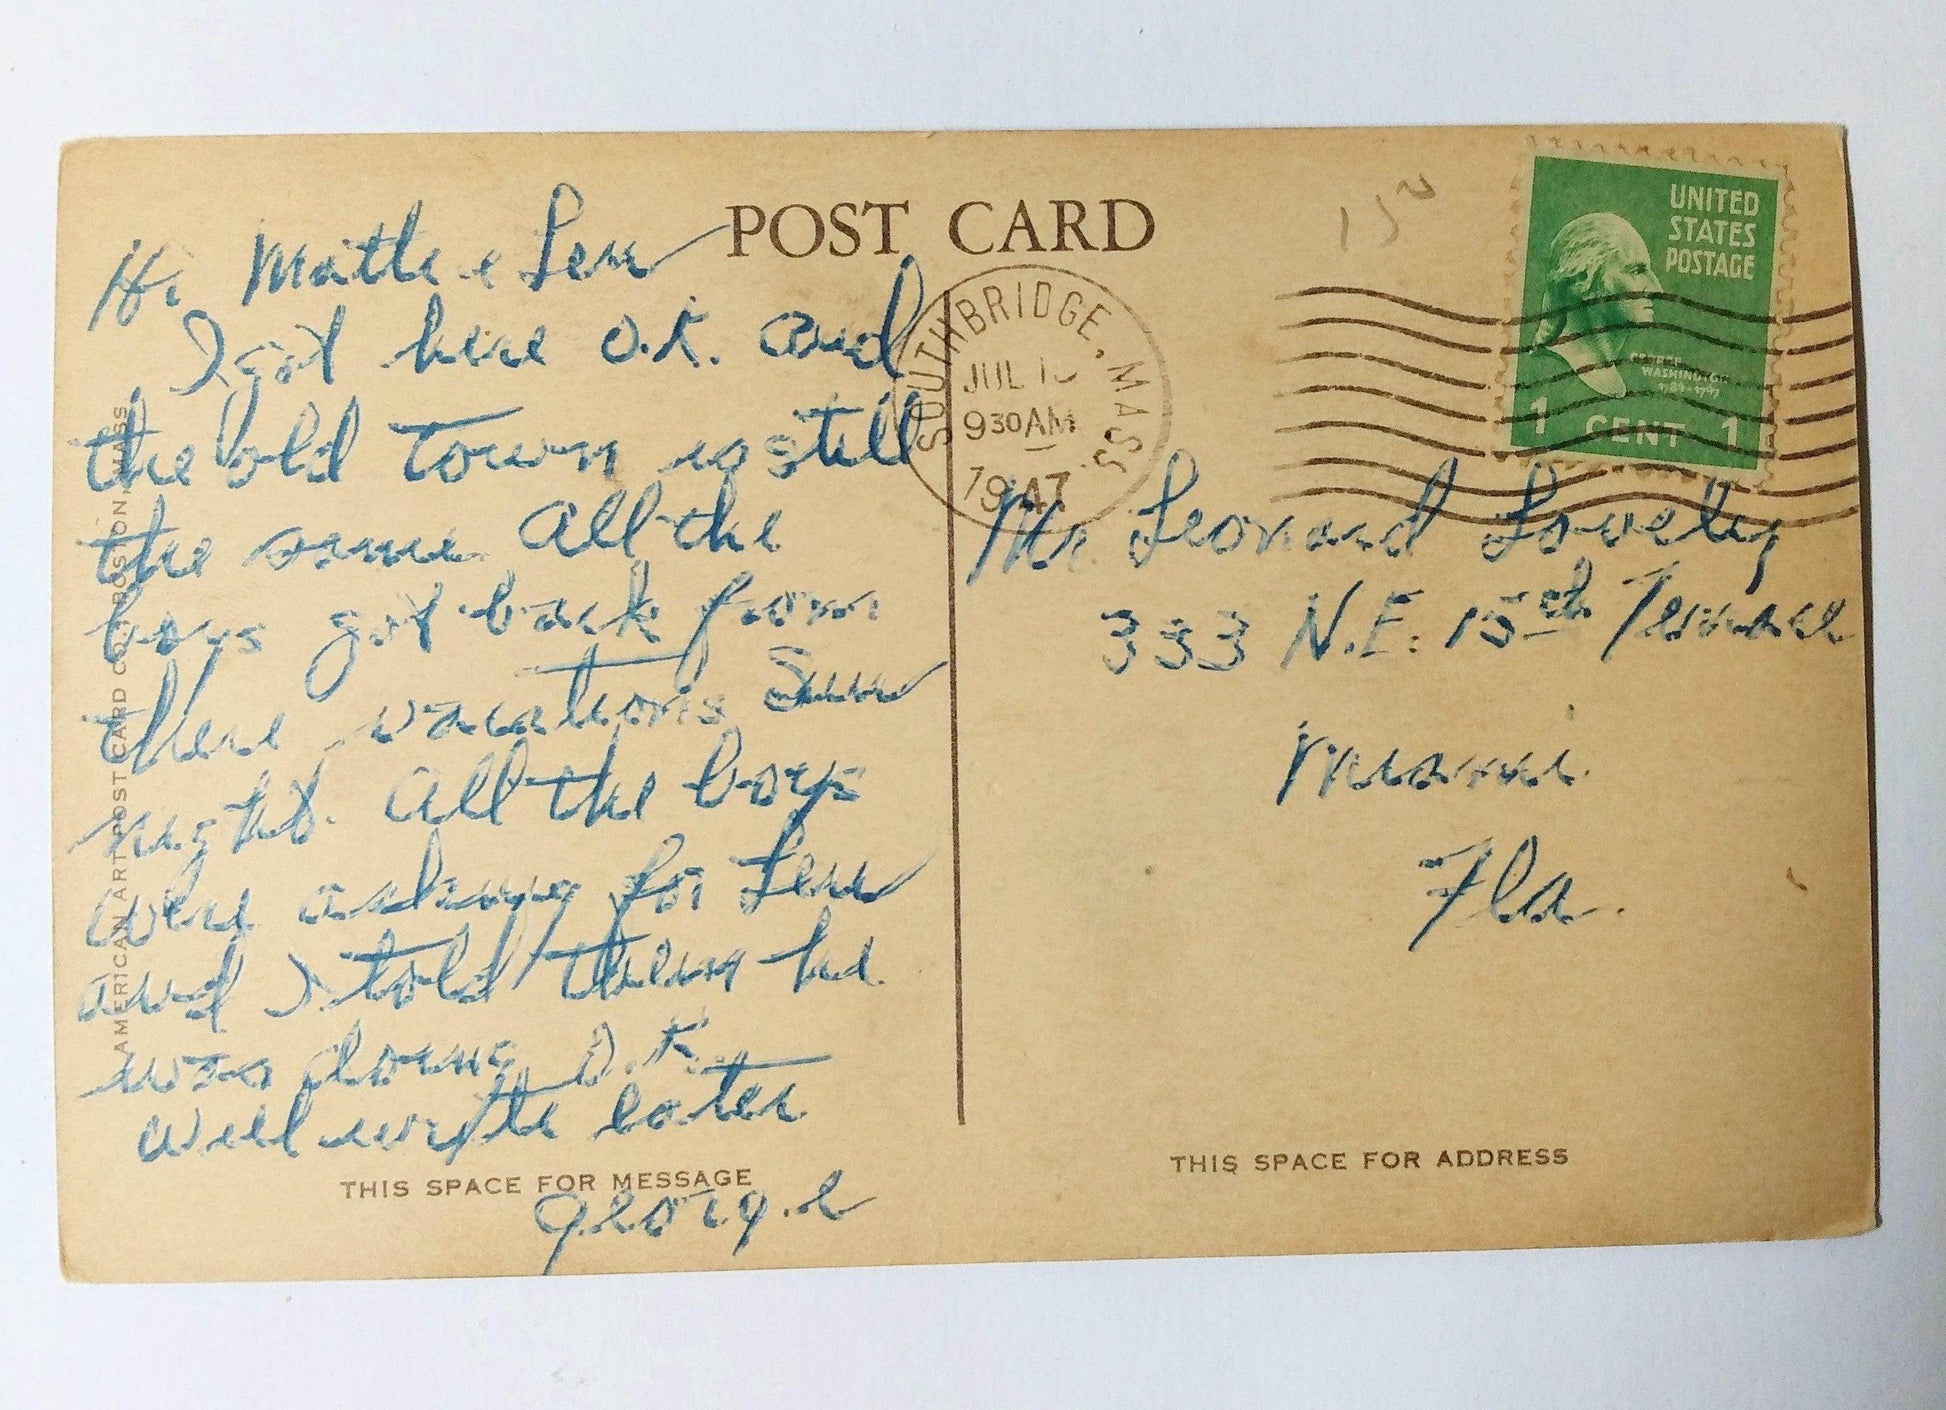 POST CARD
Hi Matti & Leu
I got here O.K. and
the old town is still
the same. All the
boys got back from
there vacations Sun
night. All the boys
were asking for Leu
and I told them he
was doing O.K.
will write later
George
THIS SPACE FOR MESSAGE
AMERICAN ART POST CARD CO., BOSTON, MASS.
SOUTHBRIDGE, MASS
JUL
9 30 AM
1947
UNITED
STATES
POSTAGE
GEORGE
WASHINGTON
1789-1797
1 CENT 1
Mr. Leonard Lovely
333 N.E. 15th Terrace
Miami
Fla.
THIS SPACE FOR ADDRESS